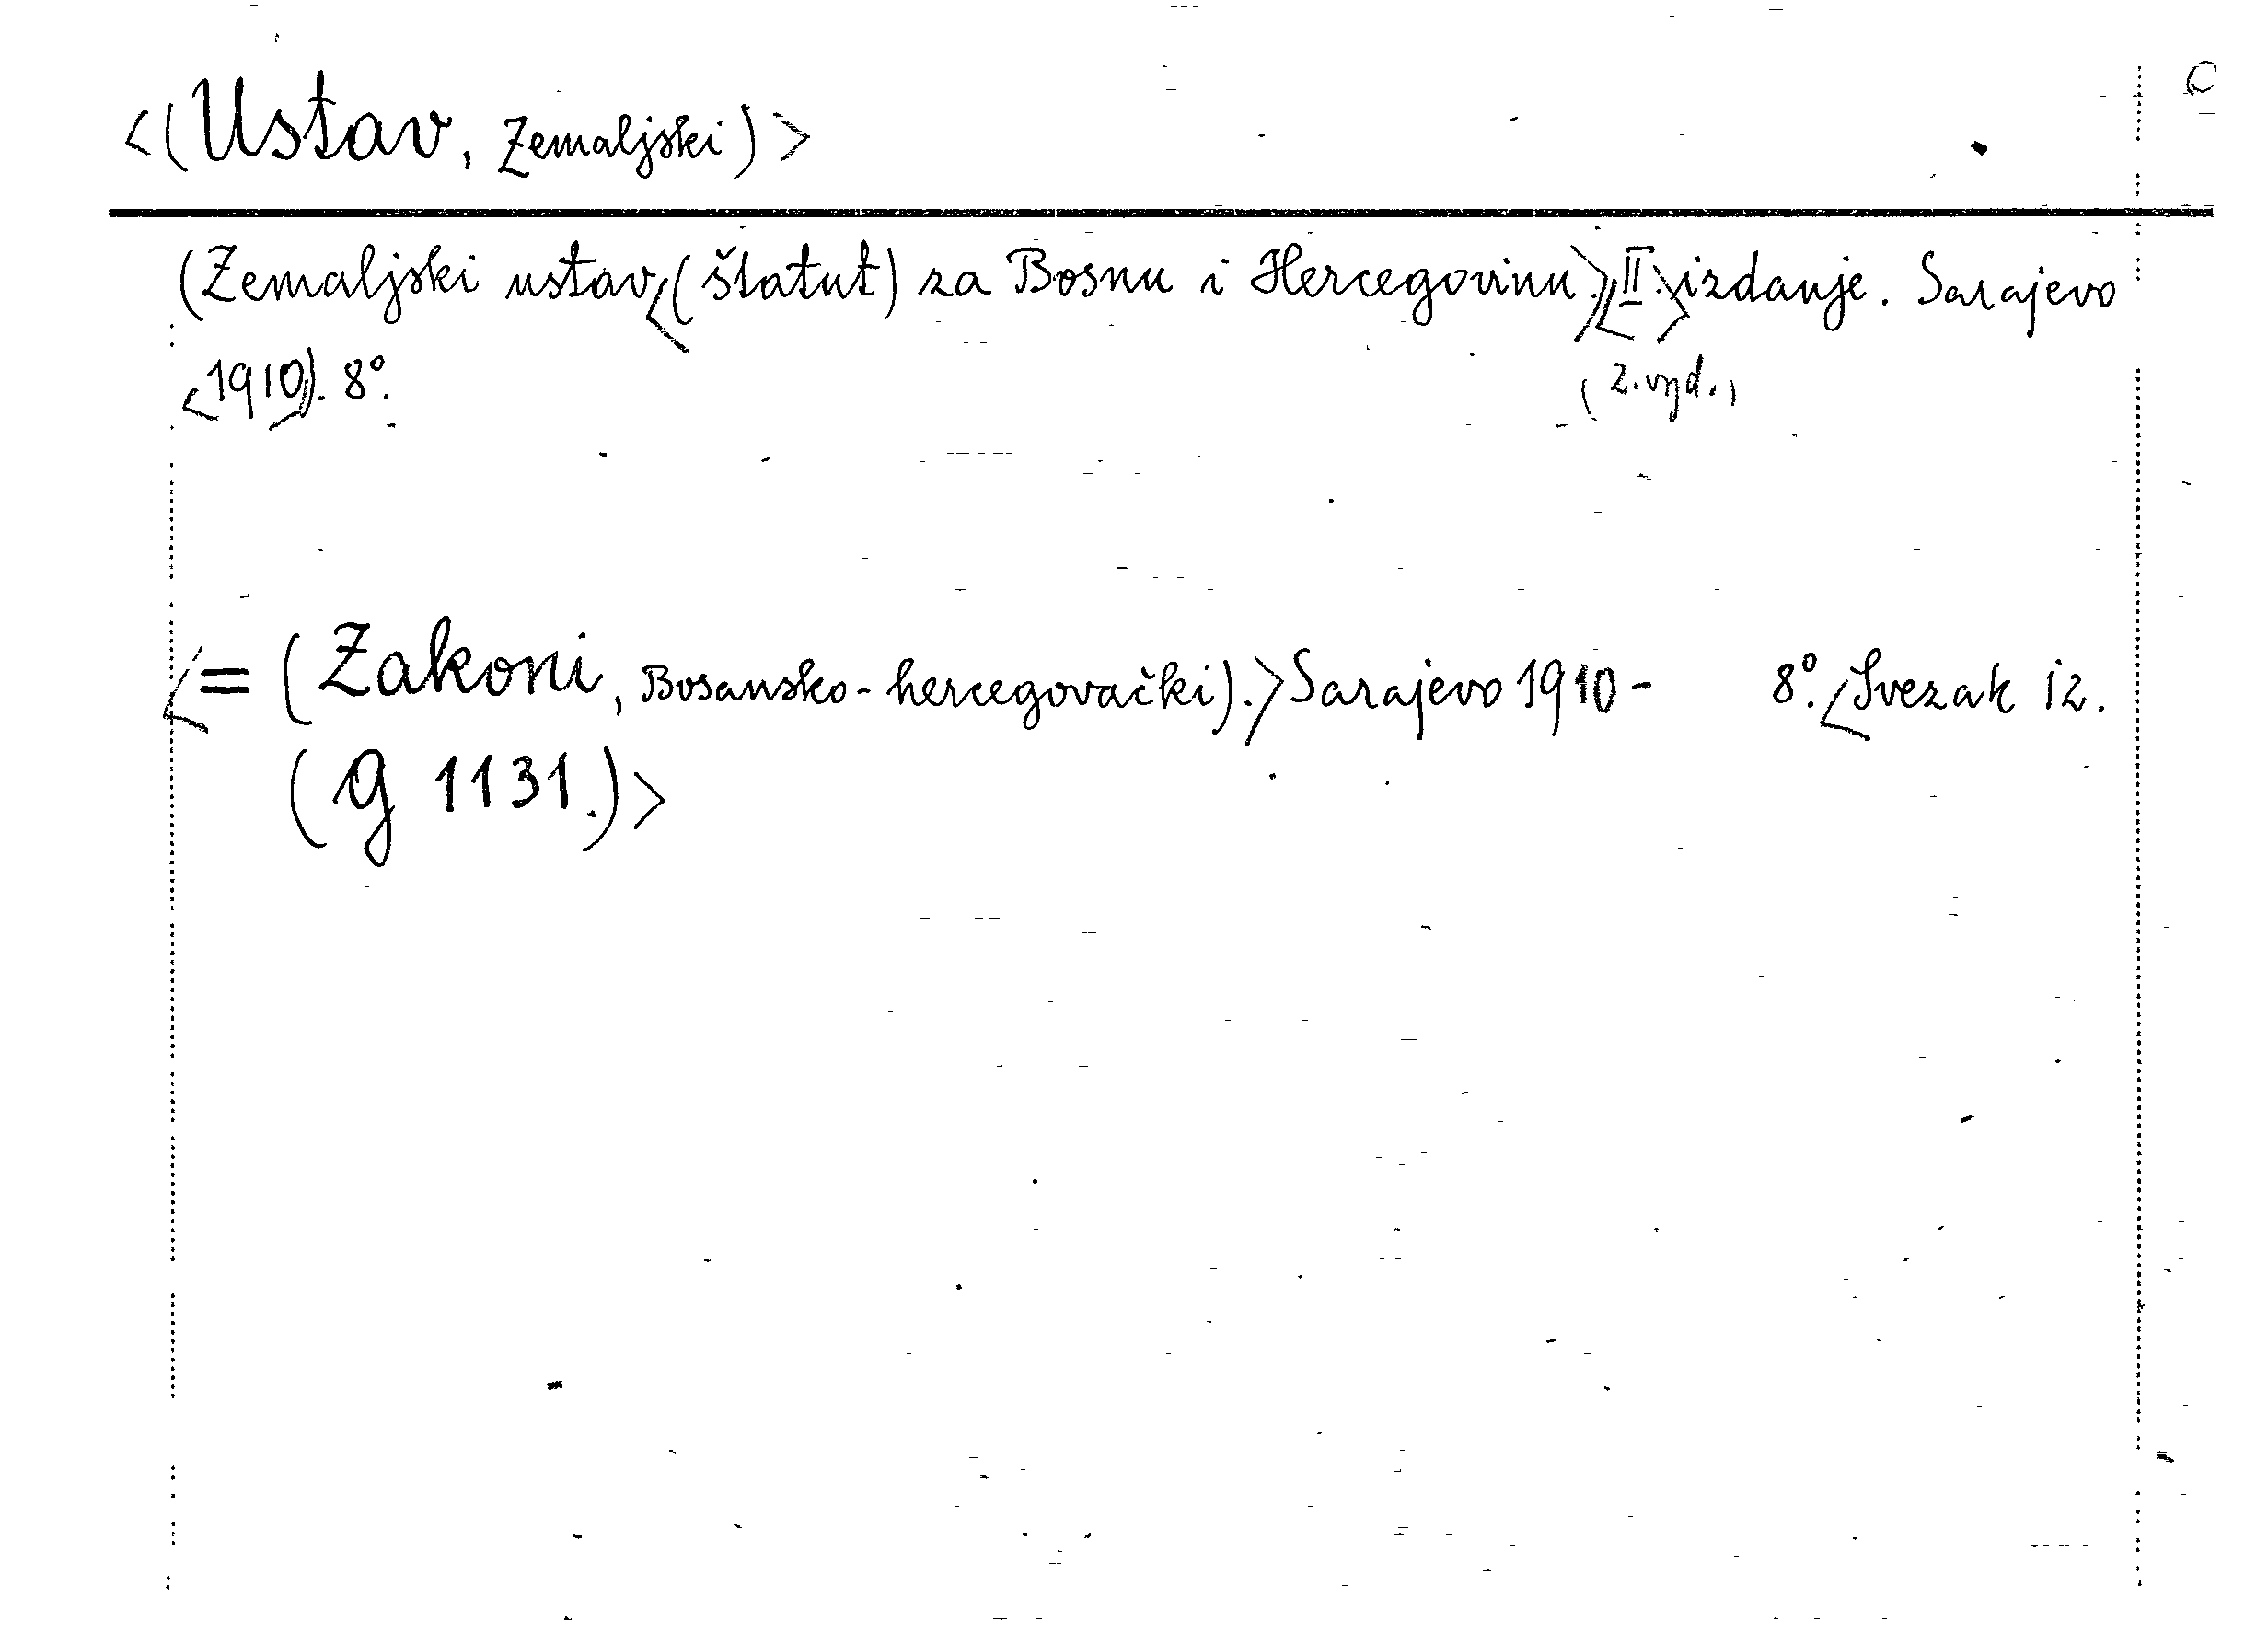 C
<(Ustav, Zemaljski)>
(Zemaljski ustav<(štatut) za Bosnu i Hercegovinu.)><II.>izdanje. Sarajevo
(2.vyd.)
<1910>). 8°.
<= (Zakoni, Bosansko-hercegovački).>Sarajevo 1910- 8°.<Svezak 12.
(g 1131.)>